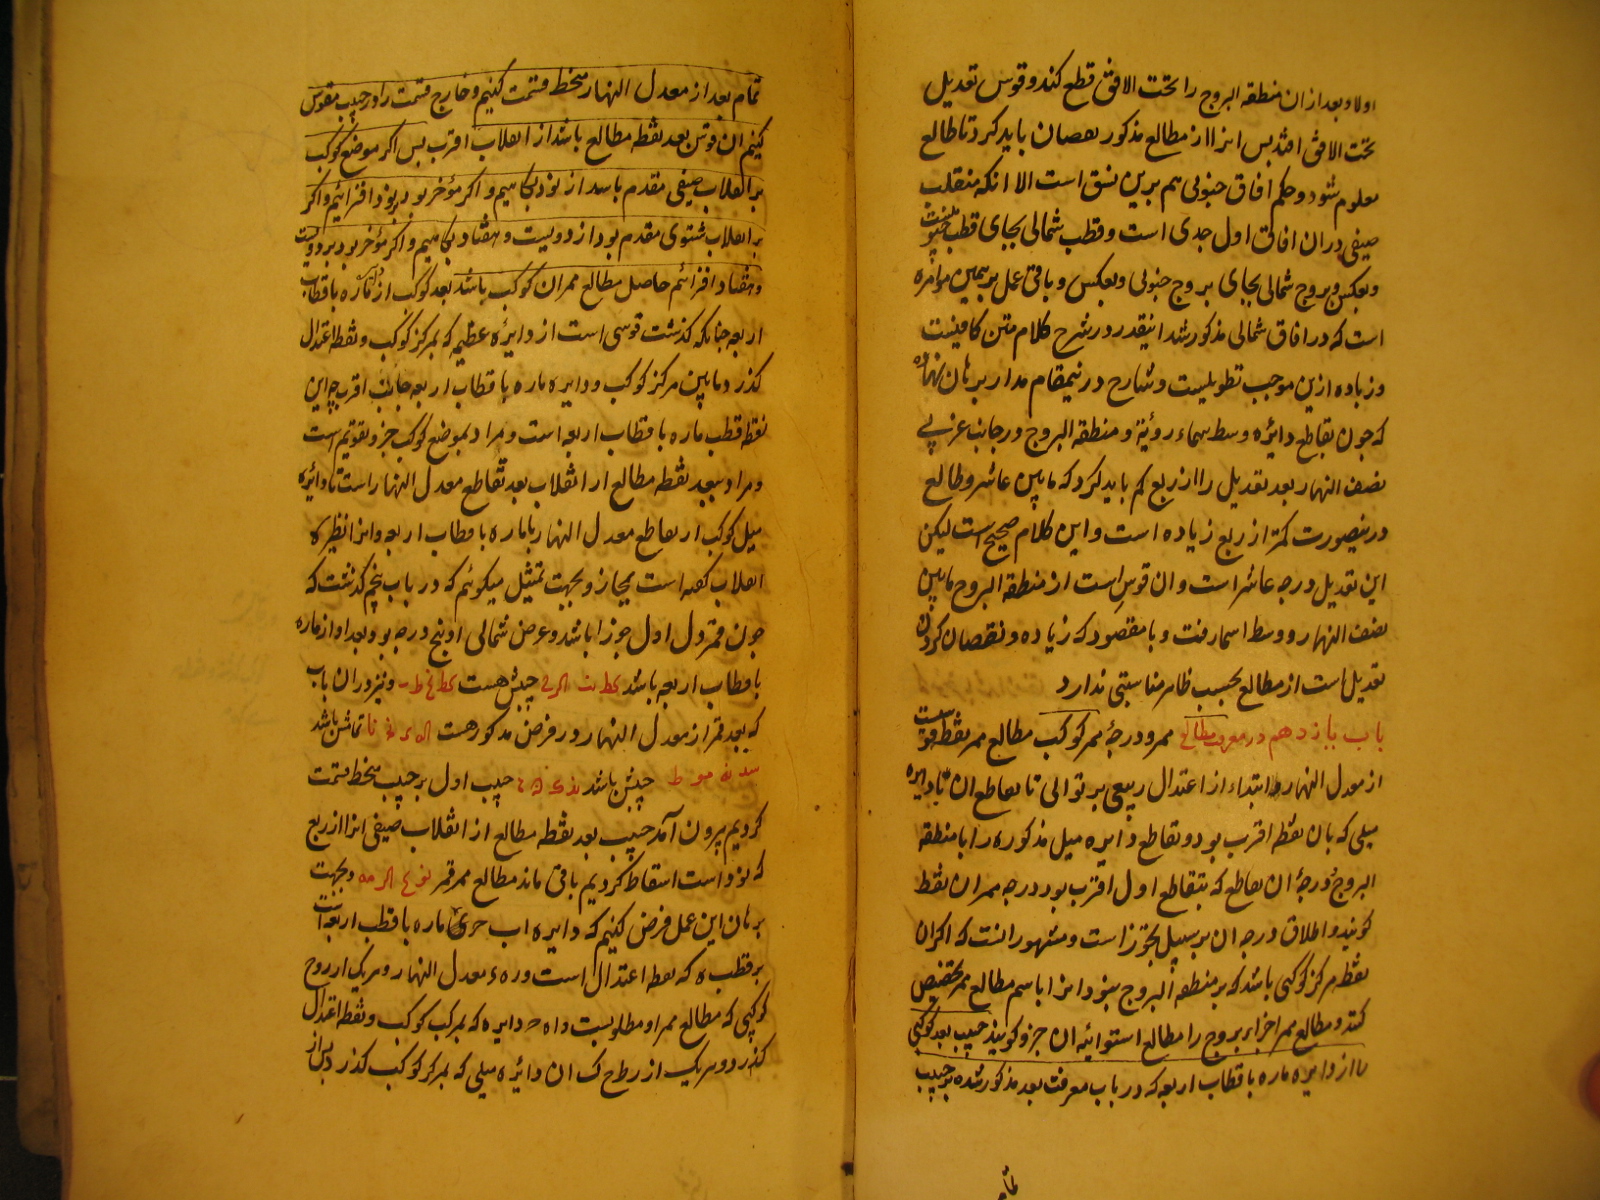 اولا و بعد ازان منطقه البروج را تحت الافق قطع کند و قوس تعدیل
تحت الافق افتد پس انرا از مطالع مذکور نقصان باید کرد تا طالع
معلوم شود و حکم افاق جنوبی هم برین نسق است الا انکه منقلب
صیفی دران افاق اول جدی است و قطب شمالی بجای قطب جنوبیست
و بعکس و بروج شمالی بجای بروج جنوبی و بعکس و باقی عمل بر همین موامره
است که در افاق شمالی مذکور شد اینقدر در شرح کلام متن کافیست
و زیاده ازین موجب تطویلست و شارح درینمقام مدار برهان نهاده
که چون تقاطع دایره وسط سماء رویة و منطقه البروج در جانب غربی
نصف النهار بعد تعدیل را از ربع کم باید کرد که مابین عاشر و طالع
درینصورت کمتر از ربع زیاده است و این کلام صحیح است لیکن
این تعدیل درجه عاشر است و ان قوس است از منطقه البروج مابین
نصف النهار و وسط اسما رفت و با مقصود که زیاده و نقصان کردن
تعدیل است از مطالع بحسب ظاهر مناسبتی ندارد
باب یازدهم در معرفت مطالع ممر و درجهٔ ممر کوکب مطالع ممر نقطه قوسیست
از معدل النهار و ابتداء از اعتدال ربیعی بر توالی تا تقاطع ان با دایره
میلی که بان نقطه اقرب بود و تقاطع دایره میل مذکوره را با منطقه
البروج درجهٔ ان تقاطع که بتقاطع اول اقرب بود درجه ممر ان نقطه
کویند و اطلاق درجه ان بر سبیل تجوز است و مشهور انست که اکر ان
نقطه مرکز کوکبی باشد که بر منطقه البروج نبود انرا باسم مطالع ممر تخصیص
کنند و مطالع ممر اجزاء بروج را مطالع استوائیه ان جزو کویند جیب بعد کوکبی
را از دایره ماره باقطاب اربعه که در باب معرفت بعد مذکور شده بر جیب
تمام
تمام بعد از معدل النهار منحط قسمت کنیم و خارج قسمت را در جیب مقوس
کنیم ان قوس بعد نقطه مطالع باشد از انقلاب اقرب پس اکر موضع کوکب
بر انقلاب صیفی مقدم باشد از نود بکاهیم و اکر مؤخر بود بر نود افزائیم و اکر
بر انقلاب شتوی مقدم بود از دویست و هفتاد بکاهیم و اکر مؤخر بود بر دویست
و هفتاد افزائیم حاصل مطالع ممر ان کوکب باشد بعد کوکب از دایره ماره باقطاب
اربعه چنانکه کذشت قوسی است از دایره عظیمه که بمرکز کوکب و نقطه اعتدال
کذرد مابین مرکز کوکب و دایره ماره باقطاب اربعه جانب اقرب چه این
نقطه قطب ماره باقطاب اربعه است و مراد بموضع کوکب جزو تقویم است
و مراد ببعد نقطه مطالع از انقلاب بعد تقاطع معدل النهار است با دایره
میل کوکب از تقاطع معدل النهار با ماره باقطاب اربعه و انرا نظیره
انقلاب کفته است مجاز و بجهت تمثیل میکوئیم که در باب پنجم کذشت که
چون قمر در اول جوزا باشد و عرض شمالی او پنج درجه بود بعد او از ماره
باقطاب اربعه باشد جیبش هست و نیز دران باب
که بعد قمر از معدل النهار در فرض مذکور هست تمامش باشد
جیبش باشد جیب اول بر جیب منحط قسمت
کردیم بیرون آمد جیب بعد نقطه مطالع از انقلاب صیفی انرا از ربع
که نود است اسقاط کردیم باقی ماند مطالع ممر قمر و بجهت
برهان این عمل فرض کنیم که دایره اب ح ماره باقطاب اربعه است
بر قطب ه که نقطه اعتدال است و ره معدل النهار و هر یک از ر و ح
کوکبی که مطالع ممر او مطلوبست و اه ح دایره که بمرکب کوکب و نقطه اعتدال
کذرد و هر یک از رط ح ک ان دایره میلی که بمرکز کوکب کذرد پس از